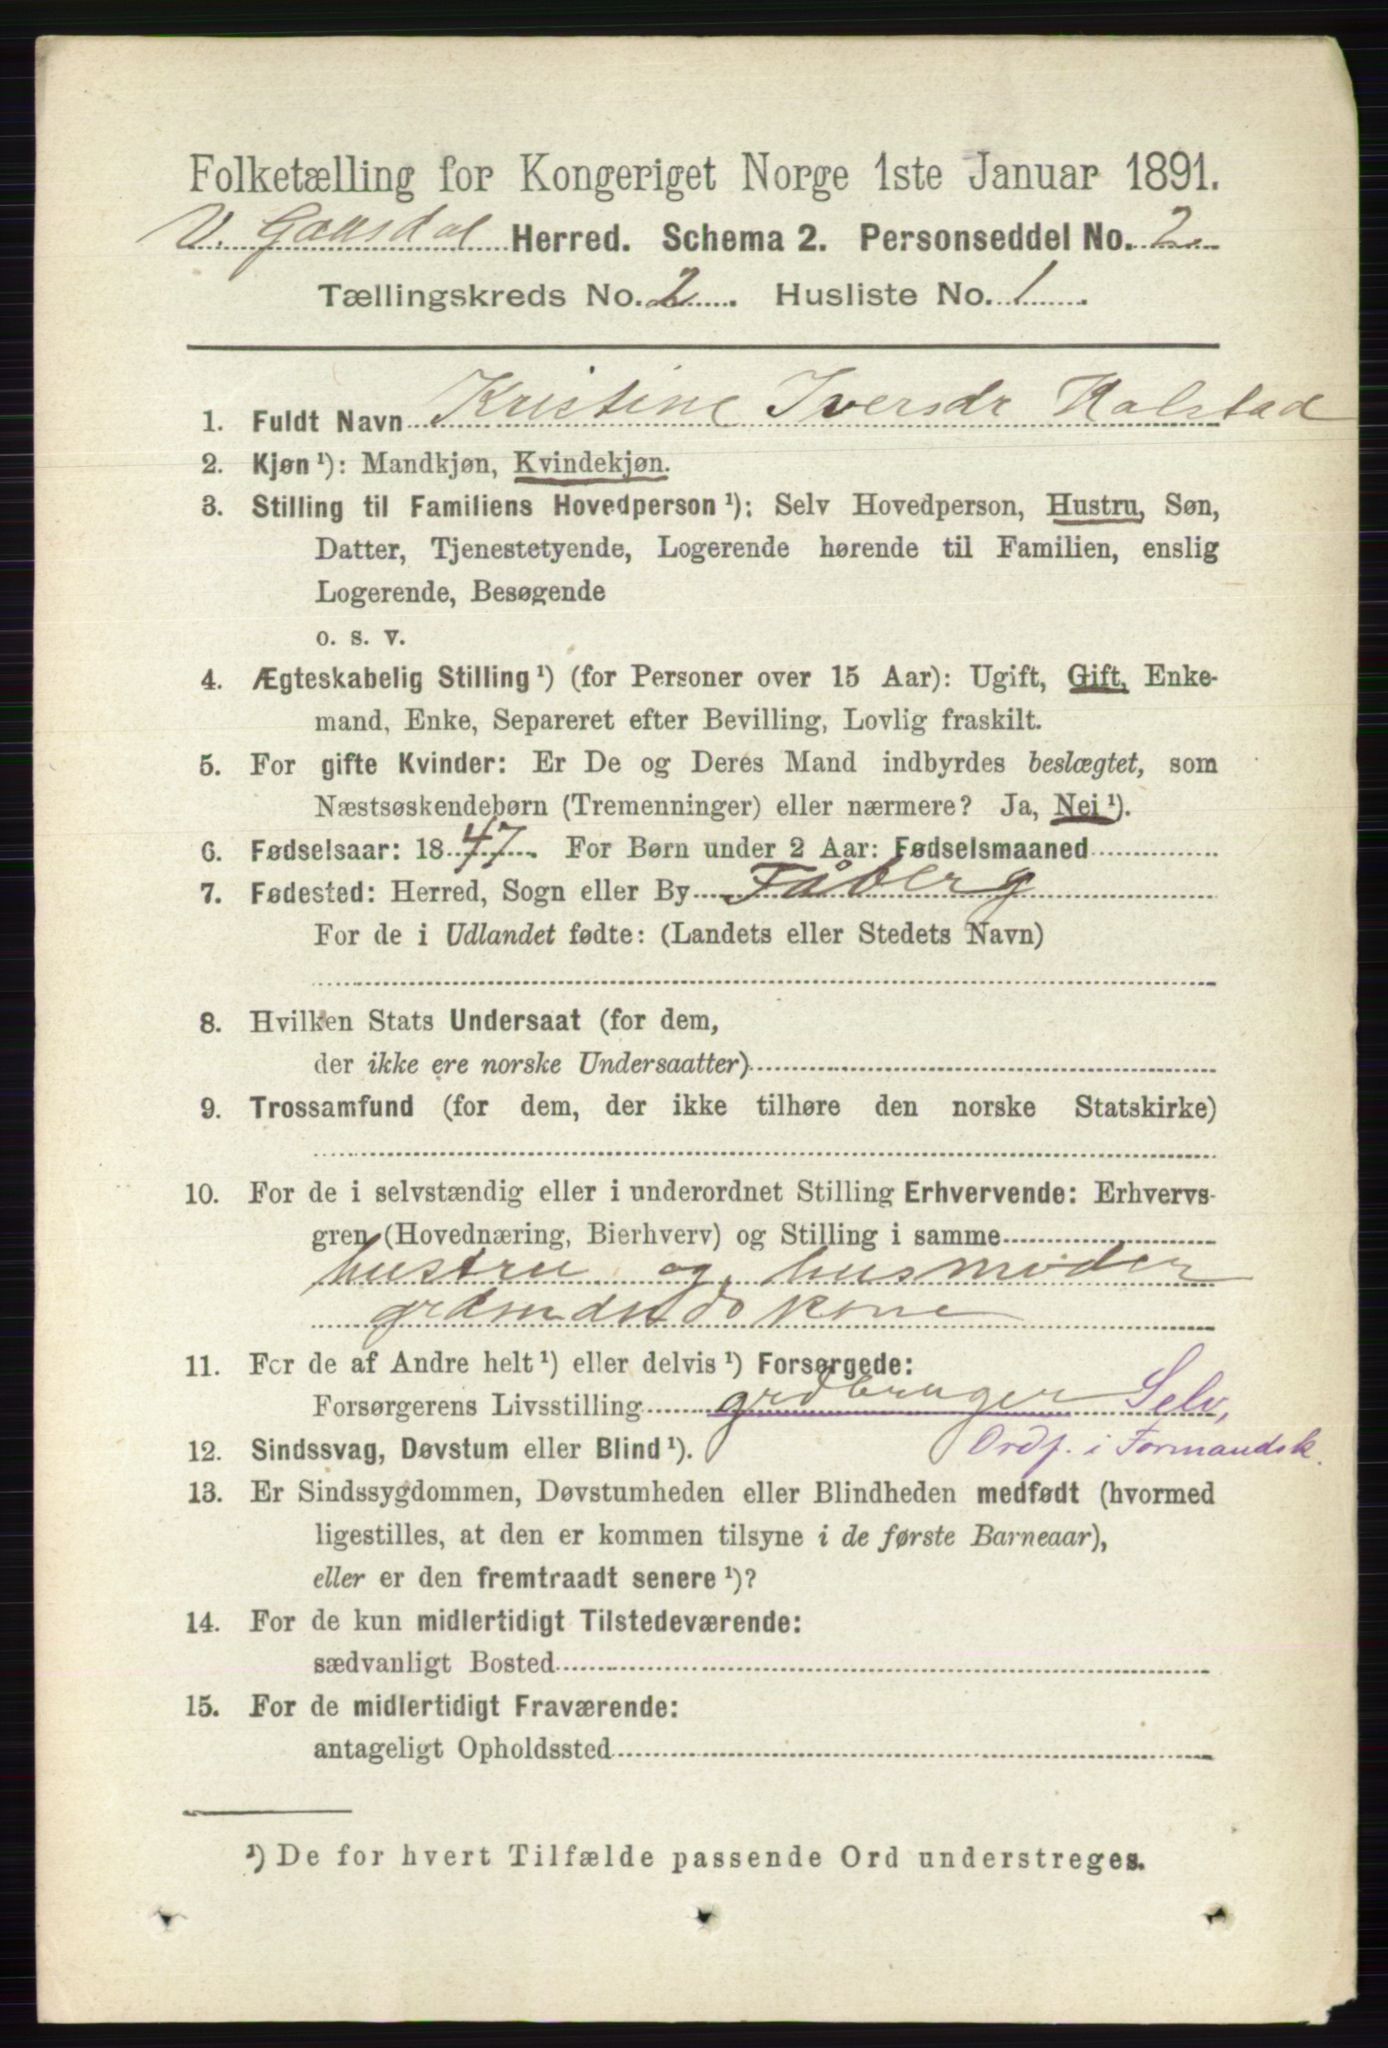 Folketælling for Kongeriget Norge 1ste Januar 1891.
V. Gausdal Herred. Schema 2. Personseddel No. 2
Tællingskreds No. 2 Husliste No. 1
1. Fuldt Navn Kristine Iversdr Kalstad
2. Kjøn ¹): Mandkjøn, Kvindekjøn.
3. Stilling til Familiens Hovedperson ¹): Selv Hovedperson, Hustru, Søn,
Datter, Tjenestetyende, Logerende hørende til Familien, enslig
Logerende, Besøgende
o. s. v.
4. Ægteskabelig Stilling ¹) (for Personer over 15 Aar): Ugift, Gift, Enke-
mand, Enke, Separeret efter Bevilling, Lovlig fraskilt.
5. For gifte Kvinder: Er De og Deres Mand indbyrdes beslægtet, som
Næstsøskendebørn (Tremenninger) eller nærmere? Ja, Nei ¹).
6. Fødselsaar: 1847. For Børn under 2 Aar: Fødselsmaaned
7. Fødested: Herred, Sogn eller By Fåberg
For de i Udlandet fødte: (Landets eller Stedets Navn)
8. Hvilken Stats Undersaat (for dem,
der ikke ere norske Undersaatter)
9. Trossamfund (for dem, der ikke tilhøre den norske Statskirke)
10. For de i selvstændig eller i underordnet Stilling Erhvervende: Erhvervs-
gren (Hovednæring, Bierhverv) og Stilling i samme
hustru og husmoder
grdmandskone
11. For de af Andre helt ¹) eller delvis ¹) Forsørgede:
Forsørgerens Livsstilling grdbruger Selv,
12. Sindssvag, Døvstum eller Blind ¹). Ordf. i Formandsk.
13. Er Sindssygdommen, Døvstumheden eller Blindheden medfødt (hvormed
ligestilles, at den er kommen tilsyne i de første Barneaar),
eller er den fremtraadt senere ¹)?
14. For de kun midlertidigt Tilstedeværende:
sædvanligt Bosted
15. For de midlertidigt Fraværende:
antageligt Opholdssted
¹) De for hvert Tilfælde passende Ord understreges.